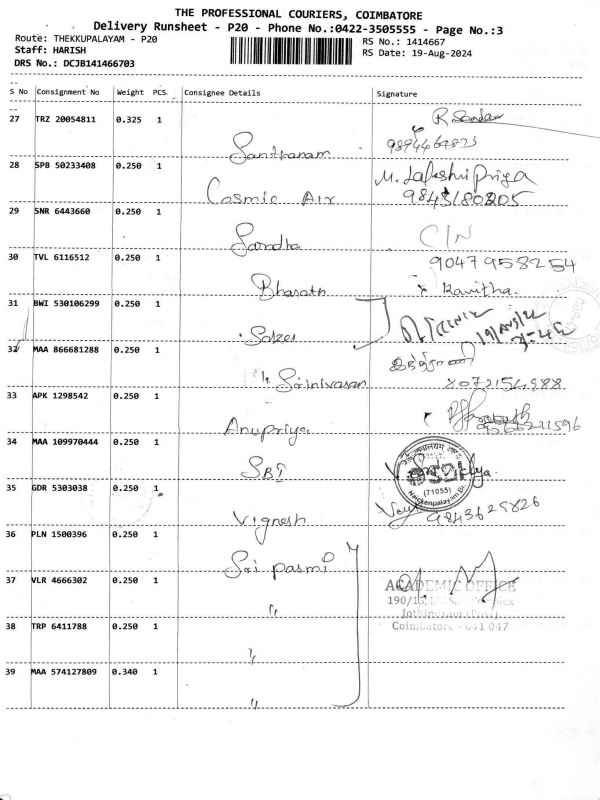 THE PROFESSIONAL COURIERS, COIMBATORE
Delivery Runsheet - P20 - Phone No.:0422-3505555 - Page No.:3
Route: THEKKUPALAYAM - P20
RS No.: 1414667
Staff: HARISH
RS Date: 19-Aug-2024
DRS No.: DCJB141466703
S No Consignment No Weight PCS Consignee Details Signature
27 TRZ 20054811 0.325 1
Santhanam
28 SPB 50233408 0.250 1 M. Lakshri Priya
Cosmic Air 9843180205
29 SNR 6443660 0.250 1
Saradha C/N
30 TVL 6116512 0.250 1 9047958254
Bharath Kavitha.
31 BWI 530106299 0.250 1
32 MAA 866681288 0.250 1
" Srinivasan 8072154988
33 APK 1298542 0.250 1
Anupriya
34 MAA 109970444 0.250 1
SBI (71055)
Naickenpalayam Br.
35 GDR 5303038 0.250 1
Vignesh 9843625826
36 PLN 1500396 0.250 1
Sri
37 VLR 4666302 0.250 1 ACADEMIC OFFICE
" 190/1
38 TRP 6411788 0.250 1 Coimbatore - 641 047
"
39 MAA 574127809 0.340 1
"